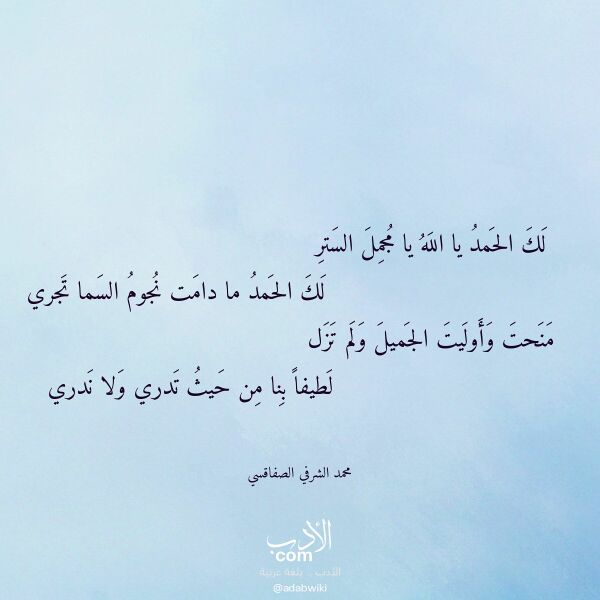 لَكَ الحَمدُ يا اللَهُ يا مُجمِلَ السَترِ
لَكَ الحَمدُ ما دامَت نُجومُ السَما تَجري
مَنَحتَ وَأَولَيتَ الجَميلَ وَلَم تَزَل
لَطيفاً بِنا مِن حَيثُ تَدري وَلا نَدري
محمد الشرفي الصفاقسي
الأدب
com
الأدب .. بلغة عربية
@adabwiki